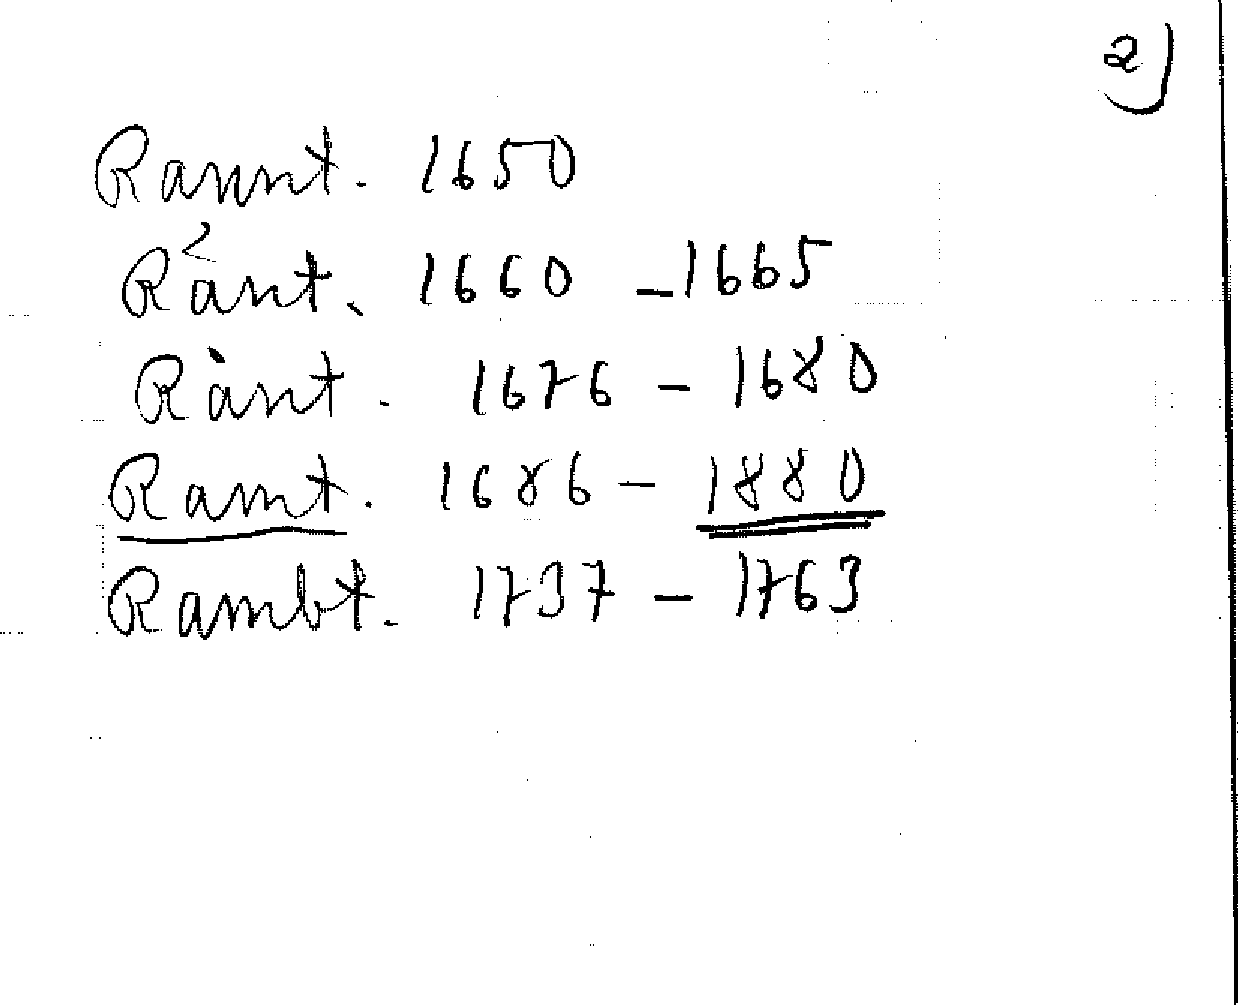 2)
Rannt. 1650
Rant. 1660 - 1665
Rànt. 1676 - 1680
Ramt. 1686 - 1880
Rambt. 1737 - 1763